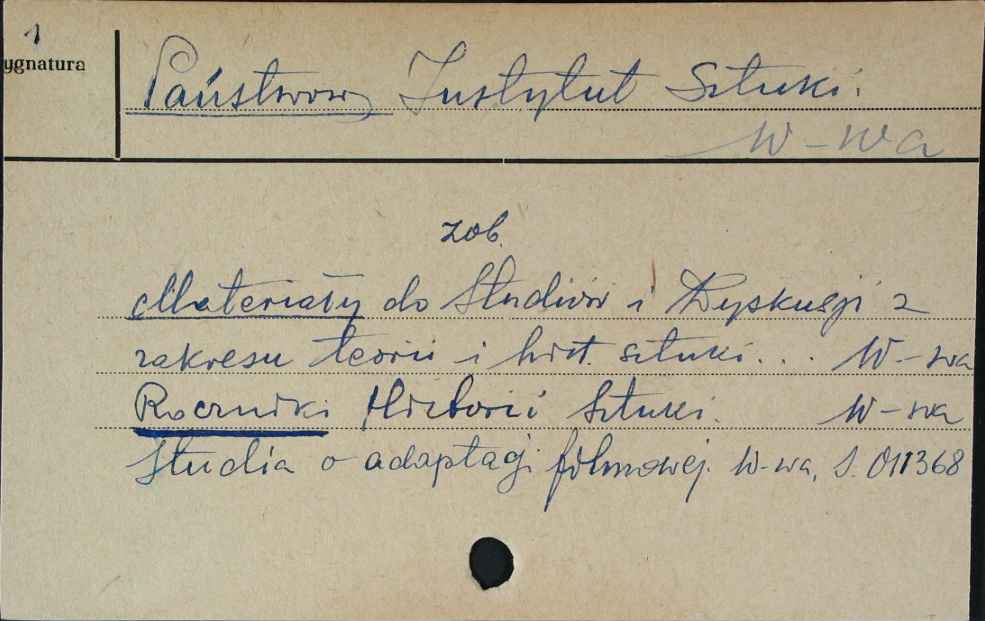 1
ygnatura
Państwowy Instytut Sztuki.
W-wa
zob.
Materiały do Studiów i Dyskusji z
zakresu teorii i hist. sztuki... W-wa
Roczniki Historii Sztuki. W-wa
Studia o adaptacji filmowej. W-wa, S. 011368